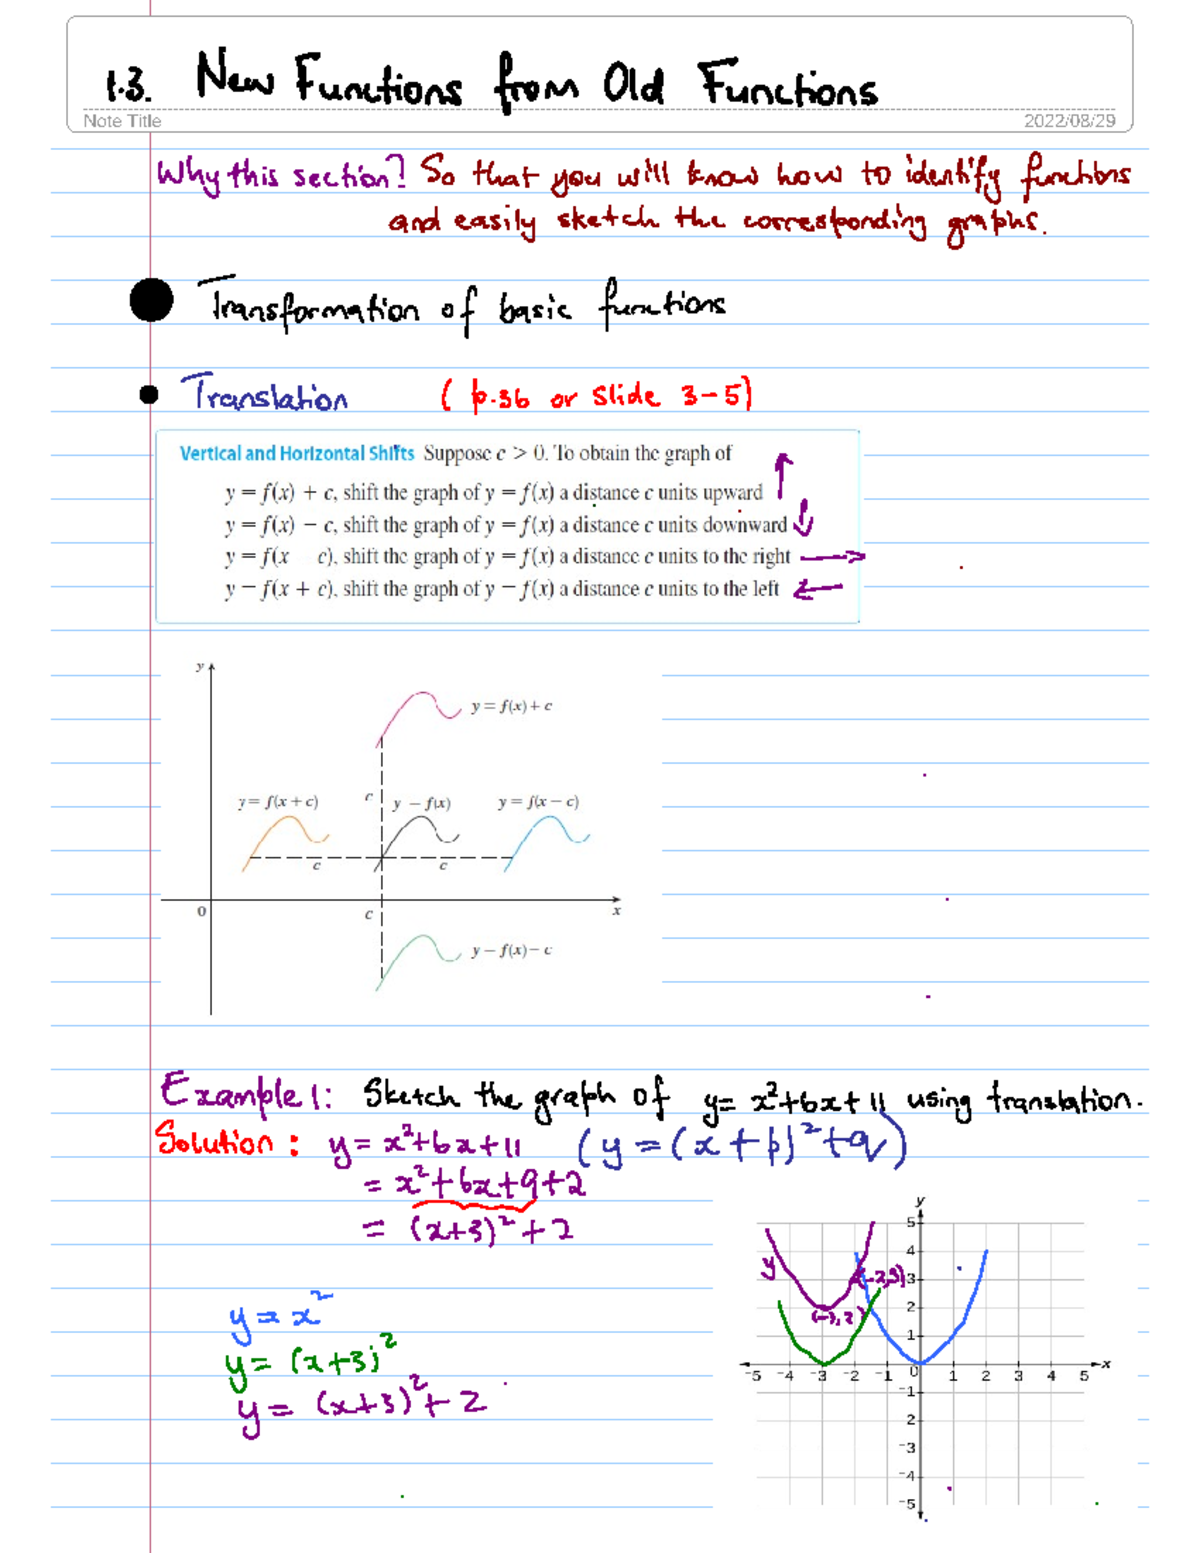 1.3. New Functions from Old Functions
Note Title
2022/08/29
Why this section? So that you will know how to identify functions
and easily sketch the corresponding graphs.
Transformation of basic functions
Translation (p.36 or Slide 3-5)
Vertical and Horizontal Shifts Suppose c > 0. To obtain the graph of
y = f(x) + c, shift the graph of y = f(x) a distance c units upward
y = f(x) − c, shift the graph of y = f(x) a distance c units downward
y = f(x c), shift the graph of y = f(x) a distance c units to the right
y − f(x + c), shift the graph of y − f(x) a distance c units to the left
y
y = f(x) + c
y = f(x + c) c y − f(x) y = f(x − c)
c c
0 c x
y − f(x) − c
Example 1: Sketch the graph of y = x²+6x+11 using translation.
Solution: y = x²+6x+11 (y = (x+p)²+q)
= x²+6x+9+2
= (x+3)²+2
y = x²
y = (x+3)²
y = (x+3)²+2
y
5
4
y (-2,3) 3
2
(-3,2)
1
-5 -4 -3 -2 -1 0 1 2 3 4 5 x
-1
2
-3
-4
-5